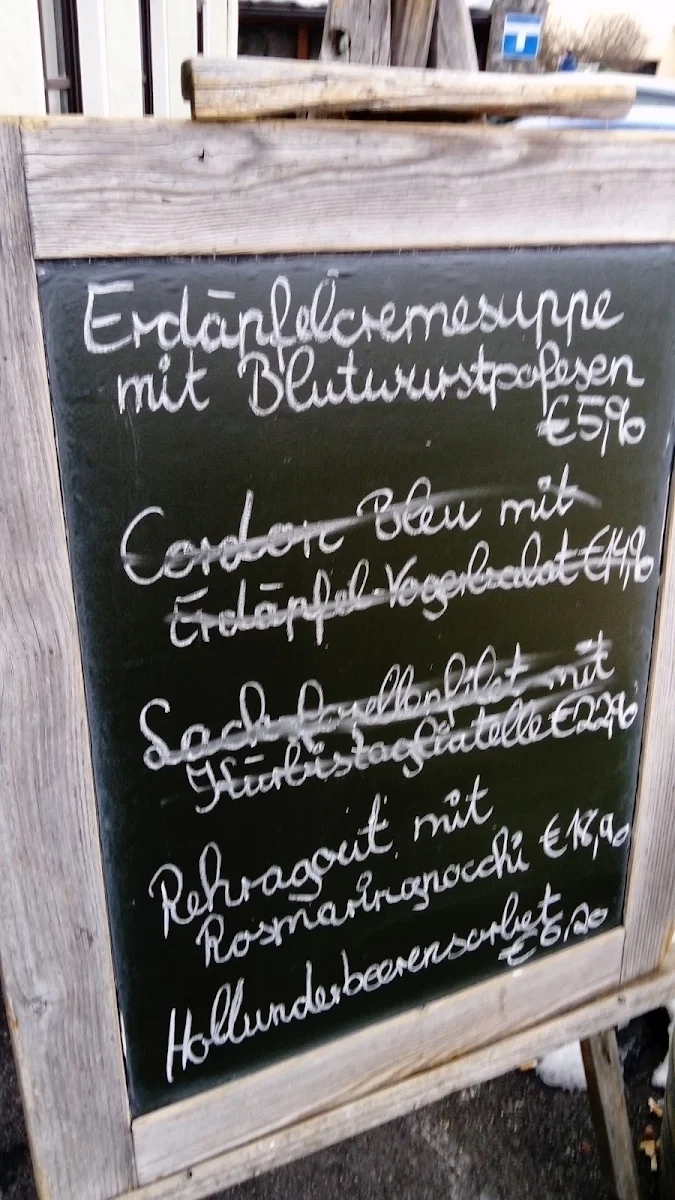 Erdäpfelcremesuppe
mit Blutwurstpofesen
€5,90
Cordon Bleu mit
Erdäpfel-Vogerlsalat €14,90
Lachsforellenfilet mit
Kürbistagliatelle €22,90
Rehragout mit
Rosmaringnocchi €18,90
Hollunderbeerensorbet
€6,20